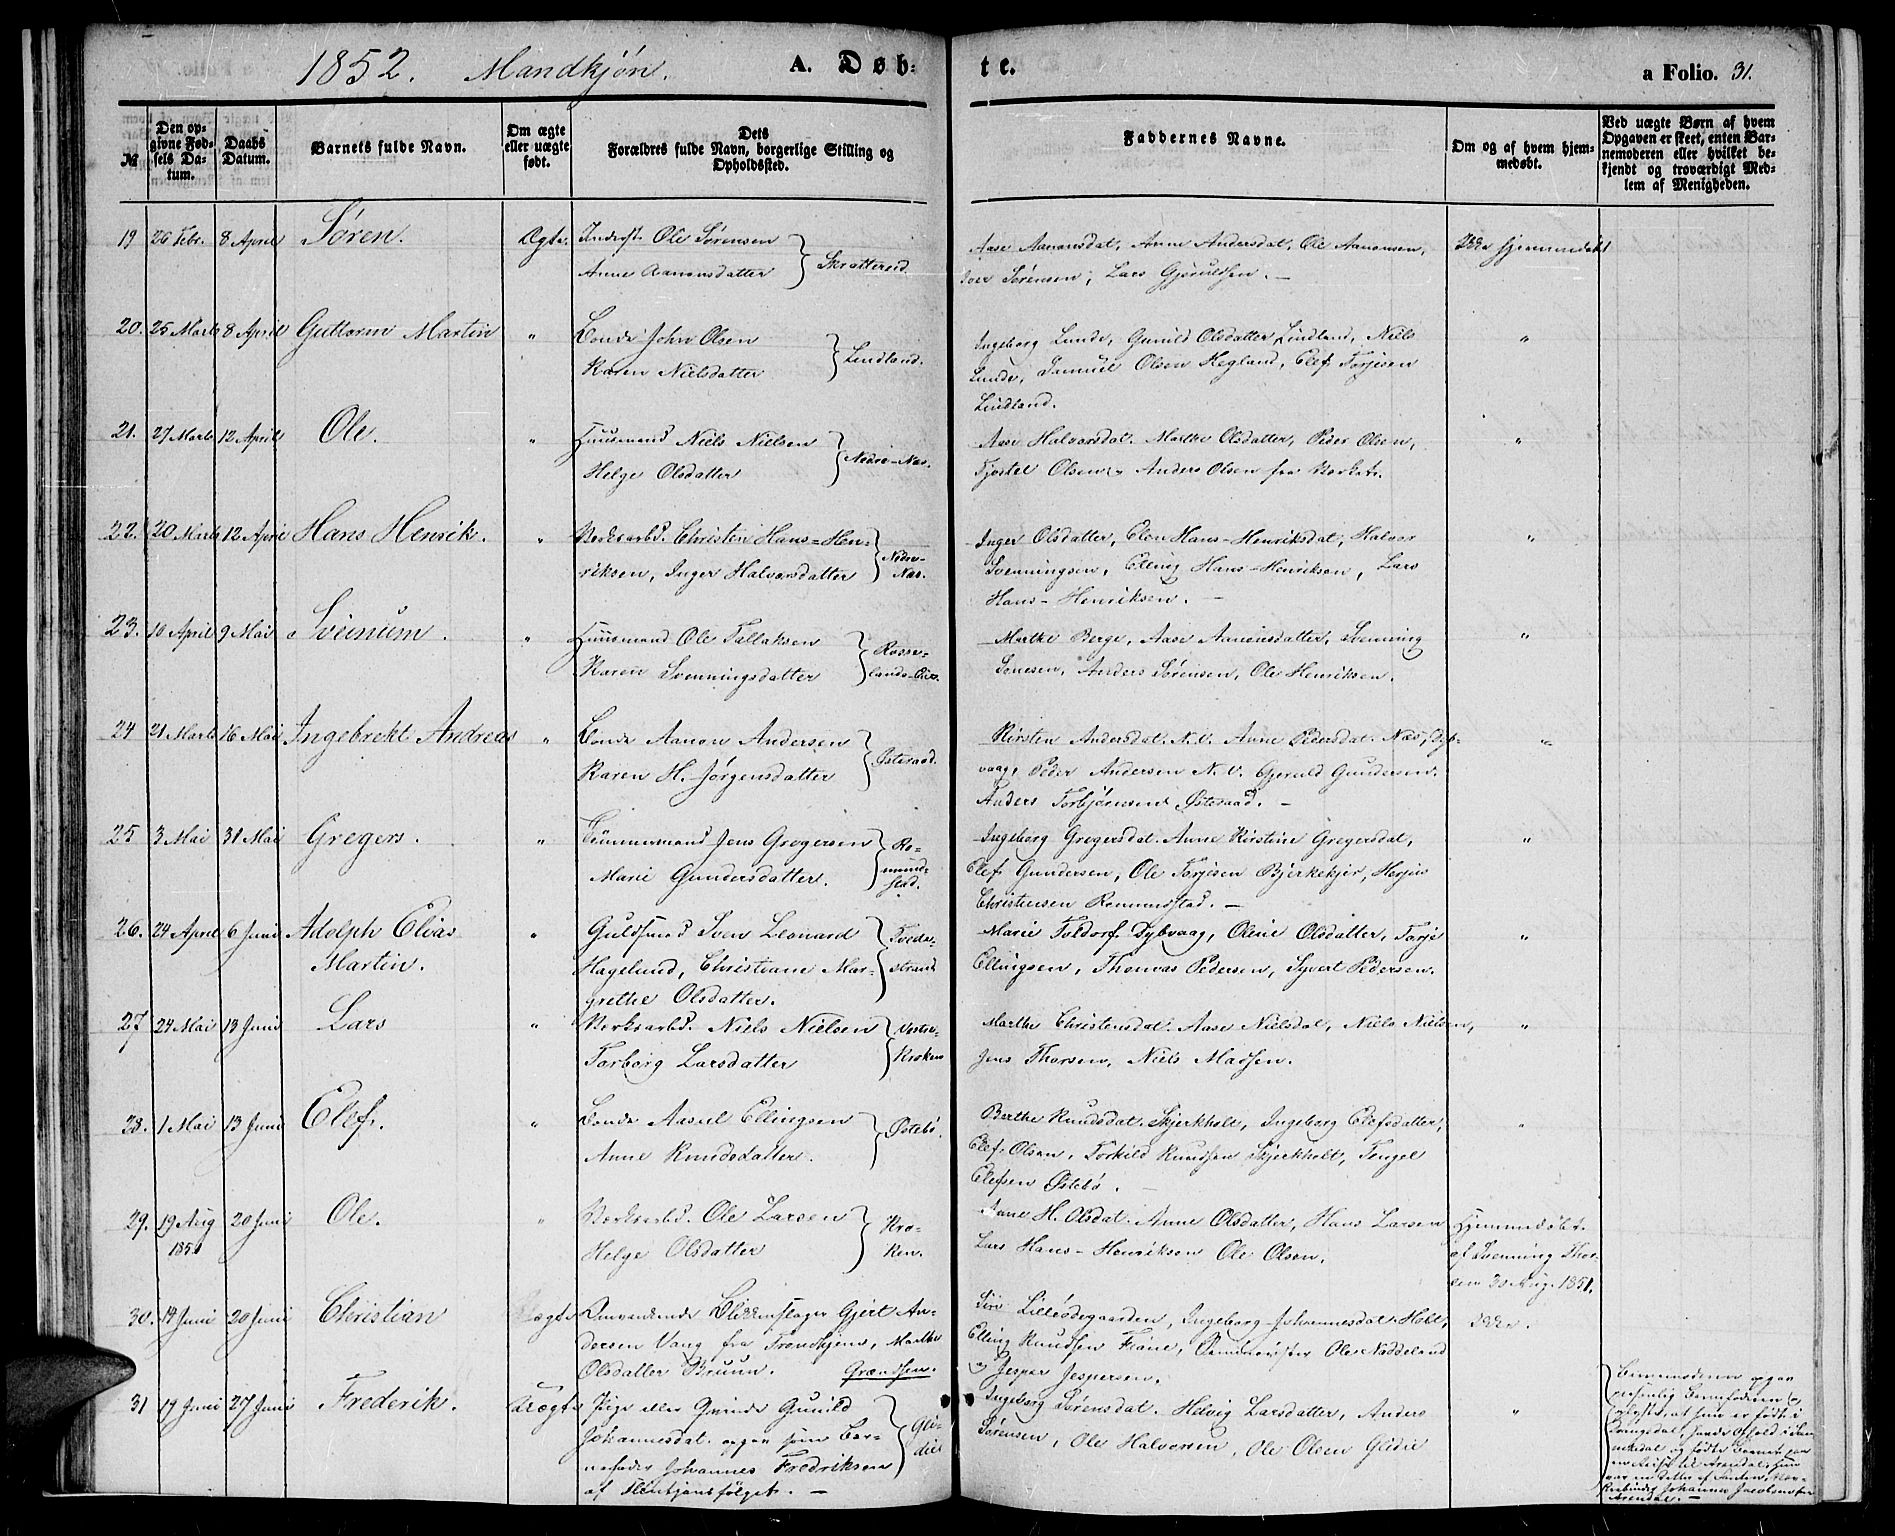 1852. Mandkjøn. A. Døb- te. a Folio. 31.
№
Den opgivne Fødsels Datum.
Daabs Datum.
Barnets fulde Navn.
Om ægte eller uægte født.
Dets Forældres fulde Navn, borgerlige Stilling og Opholdssted.
Faddernes Navne.
Om og af hvem hjemmedøbt.
Ved uægte Børn af hvem Opgaven er skeet, enten Barnemoderen eller hvilket bekjendt og troværdigt Medlem af Menigheden.
19 26 Febr. 8 April Søren. Ægte. Inderst Ole Sørensen
Anne Aanonsdatter } Skrattereid
Aase Aanonsdat, Anne Andersdat, Ole Aanonsen,
Iver Sørensen, Lars Gjeruldsen. —
Ikke hjemmedøbt
20. 25 Marts 8 April Guttorm Martin " Bonde John Olsen
Karen Nielsdatter } Lindland.
Ingeborg Lunde, Gunild Olsdatter Lindland, Niels
Lunde, Samuel Olsen Hegland, Elef Torjesen
Lindland.
"
21. 27 Marts 12 April Ole. " Huusmand Niels Nielsen
Helge Olsdatter } Nedre-Næs.
Aase Halvorsdat. Marthe Olsdatter, Peder Olsen,
Tjøstel Olsen, Anders Olsen fra Verket.
"
22. 20 Marts 12 April Hans Henrik. " Verksarbd. Christen Hans-Hen-
riksen, Inger Halvorsdatter } Nedre-
Næs.
Inger Olsdatter, Elen Hans-Henriksdat, Halvor
Svenningsen, Elling Hans-Henriksen, Lars
Hans-Henriksen. —
"
23. 10 April 9 Mai Sveinum. " Huusmand Ole Tallaksen
Karen Svenningsdatter } Rosse-
lands-
Marthe Berge, Aase Aanensdatter, Svenning
Anders Sørensen, Ole Henriksen.
"
24 21 Marts 16 Mai Ingebrekt Andreas " Bonde Aanon Andersen
Karen H. Jørgensdatter } Østeraad.
Kirsten Andersdat. N.V. Anne Pedersdat. Næs, Dyb-
vaag, Peder Andersen N.V. Gjeruld Gundersen.
Anders Torbjørnsen Østeraad. —
"
25 3 Mai 31 Mai Gregers. " Tømmermand Jens Gregersen
Marie Gundersdatter. } Ro-
mund-
stad.
Ingeborg Gregersdat. Anne Kirstine Gregersdat,
Elef Gundersen, Ole Torjesen Bjerkekjer, Herjus
Christensen Romundstad. —
"
26. 24 April 6 Juni Adolph Elias
Martin. " Guldsmed Sven Leonard
Hagelund, Christiane Mar-
grethe Olsdatter. } Tvede-
strand
Marie Foldorf Dybvaag, Oline Olsdatter, Terje
Ellingsen, Thomas Pedersen, Syvert Pedersen.
"
27 24 Mai 13 Juni Lars " Verksarbd. Niels Nielsen
Torborg Larsdatter } Vestre-
Kroken
Marthe Christensdat. Aase Nielsdat, Niels Nielsen,
Jens Thorsen, Niels Madsen.
"
28. 1 Mai 13 Juni Elef. " Bonde Aasul Ellingsen
Anne Knudsdatter. } Østebø.
Berthe Knudsdat. Skjerkholt, Ingeborg Elefsdatter,
Elef Olsen, Torkild Knudsen Skjerkholt, Tengel
Elefsen Østebø. —
"
29. 19 Aug
1851 20 Juni Ole. " Verksarbd. Ole Larsen
Helge Olsdatter } Kro-
ken.
Anne H. Olsdat. Anne Olsdatter, Hans Larsen
Lars Hans-Henriksen Ole Olsen.
Hjemmedøbt
af Svenning Thor-
sen 30 Aug. 1851.
30. 14 Juni 20 Juni Christian Uægte Omvankende Blikkenslager Gjert An-
dersen Vang fra Trondhjem, Marthe
Olsdatter Bruun. Grændsen.
Siri Lilleødegaarden, Ingeborg Johannesdat. Holt,
Elling Knudsen Fiane, Ole Næddeland
og Jesper Jespersen.
Ikke.
31 17 Juni 27 Juni Frederik. Uægte Pige eller Qvinde Gunild
Johannesdat. opgav som Bar-
nefader Johannes Fredriksen
af Flentjansfølget. — } Gli-
die
Ingeborg Sørensdat. Helvig Larsdatter, Anders
Sørensen, Ole Halvorsen, Ole Olsen Glidie
"
Barnemoderen opgav
personlig Barnefaderen og
oplyste, at hun er født i
Drangedal, havde Ophold i
og fødte Barnet paa
en Reise til Arendal, hun
var en Datter af
Johannes Jacobsen fra
Arendal. —